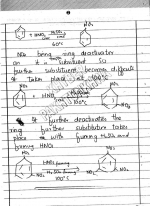 NO₂
+ HNO₃ H₂SO₄
60°C
NO₂ being ring deactivator
on it a substituent so
further substituent become difficult
it takes place at 100°C
NO₂
+ HNO₃ H₂SO₄
100°C
NO₂
NO₂
It further deactivates the
ring further substitution takes
place with fuming H₂SO₄ and
fuming HNO₃
NO₂
HNO₃ fuming
NO₂
H₂SO₄ fuming
100°C
NO₂
NO₂